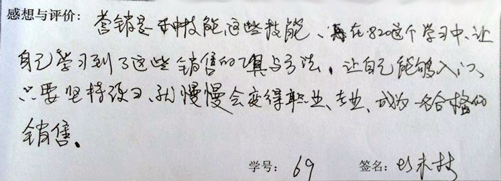 感想与评价：营销是一种技能，这些技能、再在820这个学习中、让
自己学习到了这些销售的工具与方法，让自己能够入门、
只要坚持按习、就慢慢会变得职业、专业、成为一名合格的
销售。
学号：69 签名：